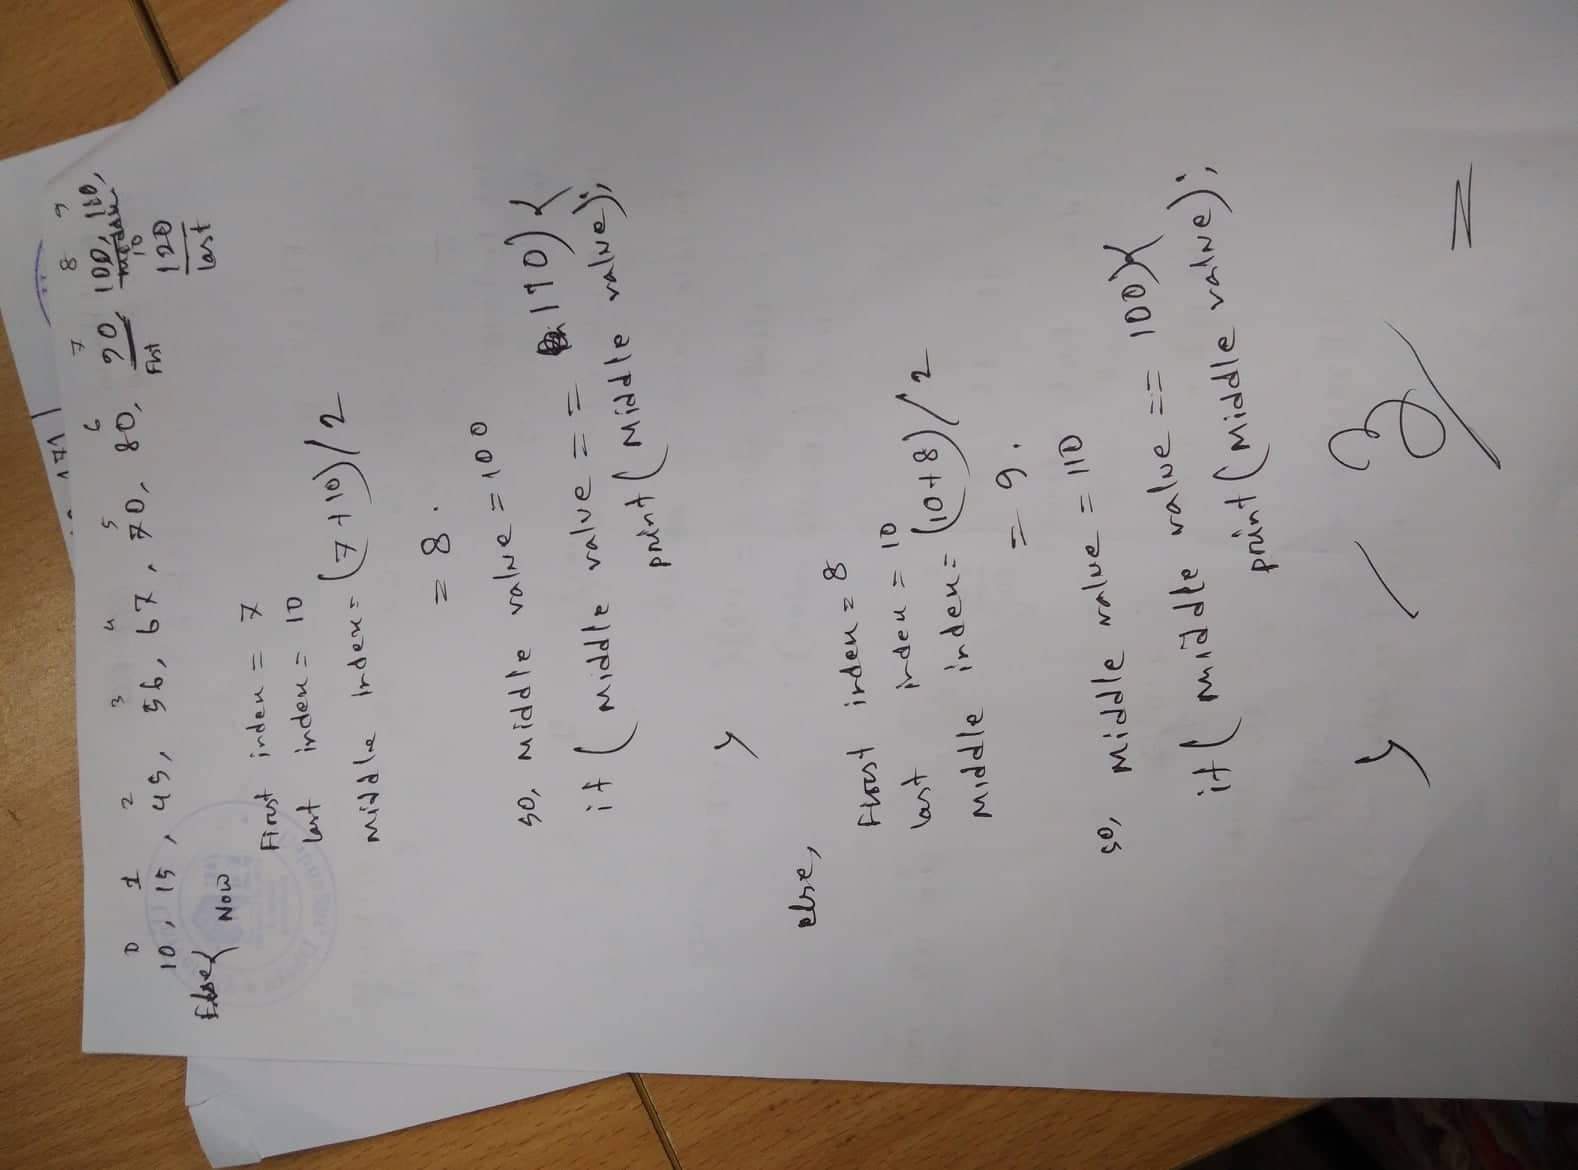 171
0 1 2 3 4 5 6 7 8 9
10, 15, 45, 56, 67, 70, 80, 90 100, 110,
First middle
10
120
last
Else{ Now
First index = 7
last index = 10
Middle index = (7+10)/2
= 8.
so, Middle value = 100
if ( Middle value == 110) {
print ( Middle value);
}
else,
First index = 8
last index = 10
Middle index = (10+8)/2
= 9.
so, Middle value = 110
if ( middle value == 100) {
print ( Middle value);
}
3